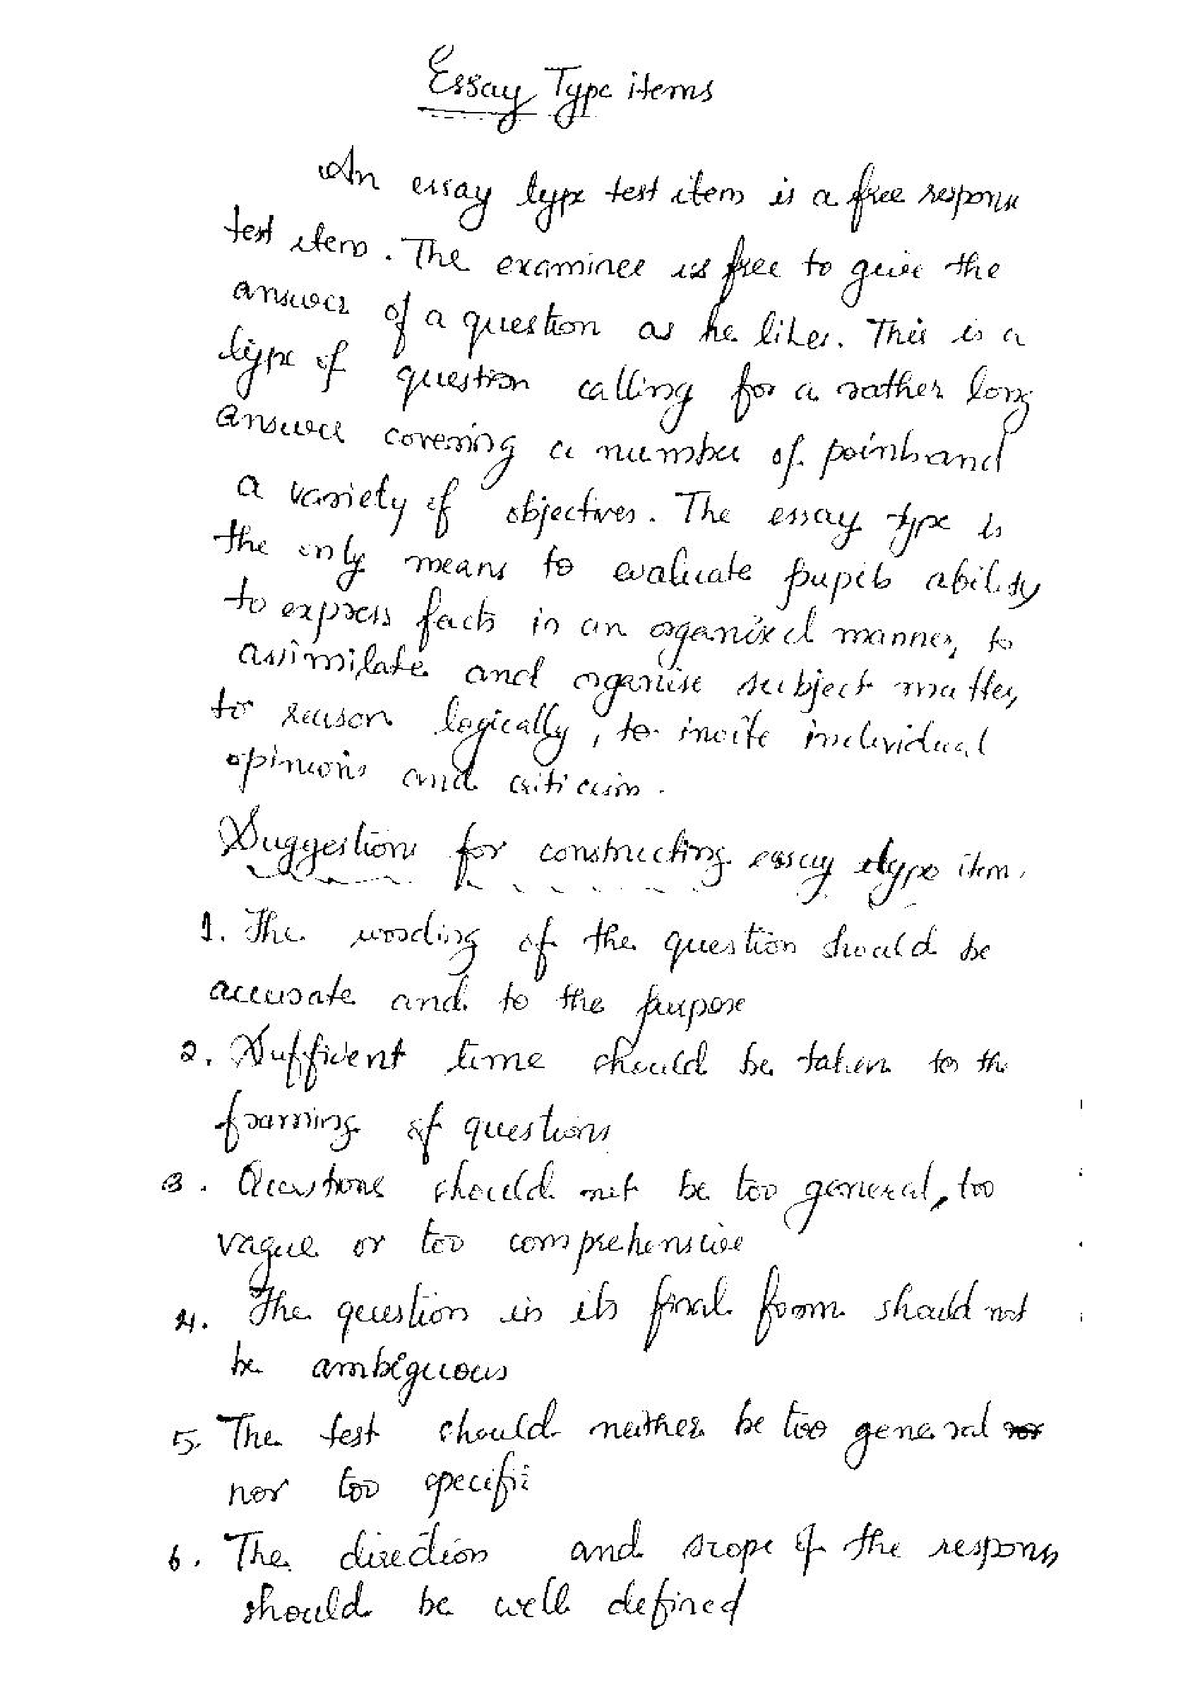 Essay Type items
An essay type test item is a free response
test item. The examinee is free to give the
answer of a question as he likes. This is a
type of question calling for a rather long
answer covering a number of points and
a variety of objectives. The essay type is
the only means to evaluate pupils ability
to express facts in an organized manner, to
assimilate and organise subject matter,
to reason logically, to incite individual
opinions and criticism.
Suggestions for constructing essay type item.
1. The wording of the question should be
accurate and to the purpose
2. Sufficient time should be taken to the
framing of questions
3. Questions should not be too general, too
vague or too comprehensive
4. The question in its final form should not
be ambiguous
5. The test should neither be too general nor
nor too specific
6. The direction and scope of the response
should be well defined